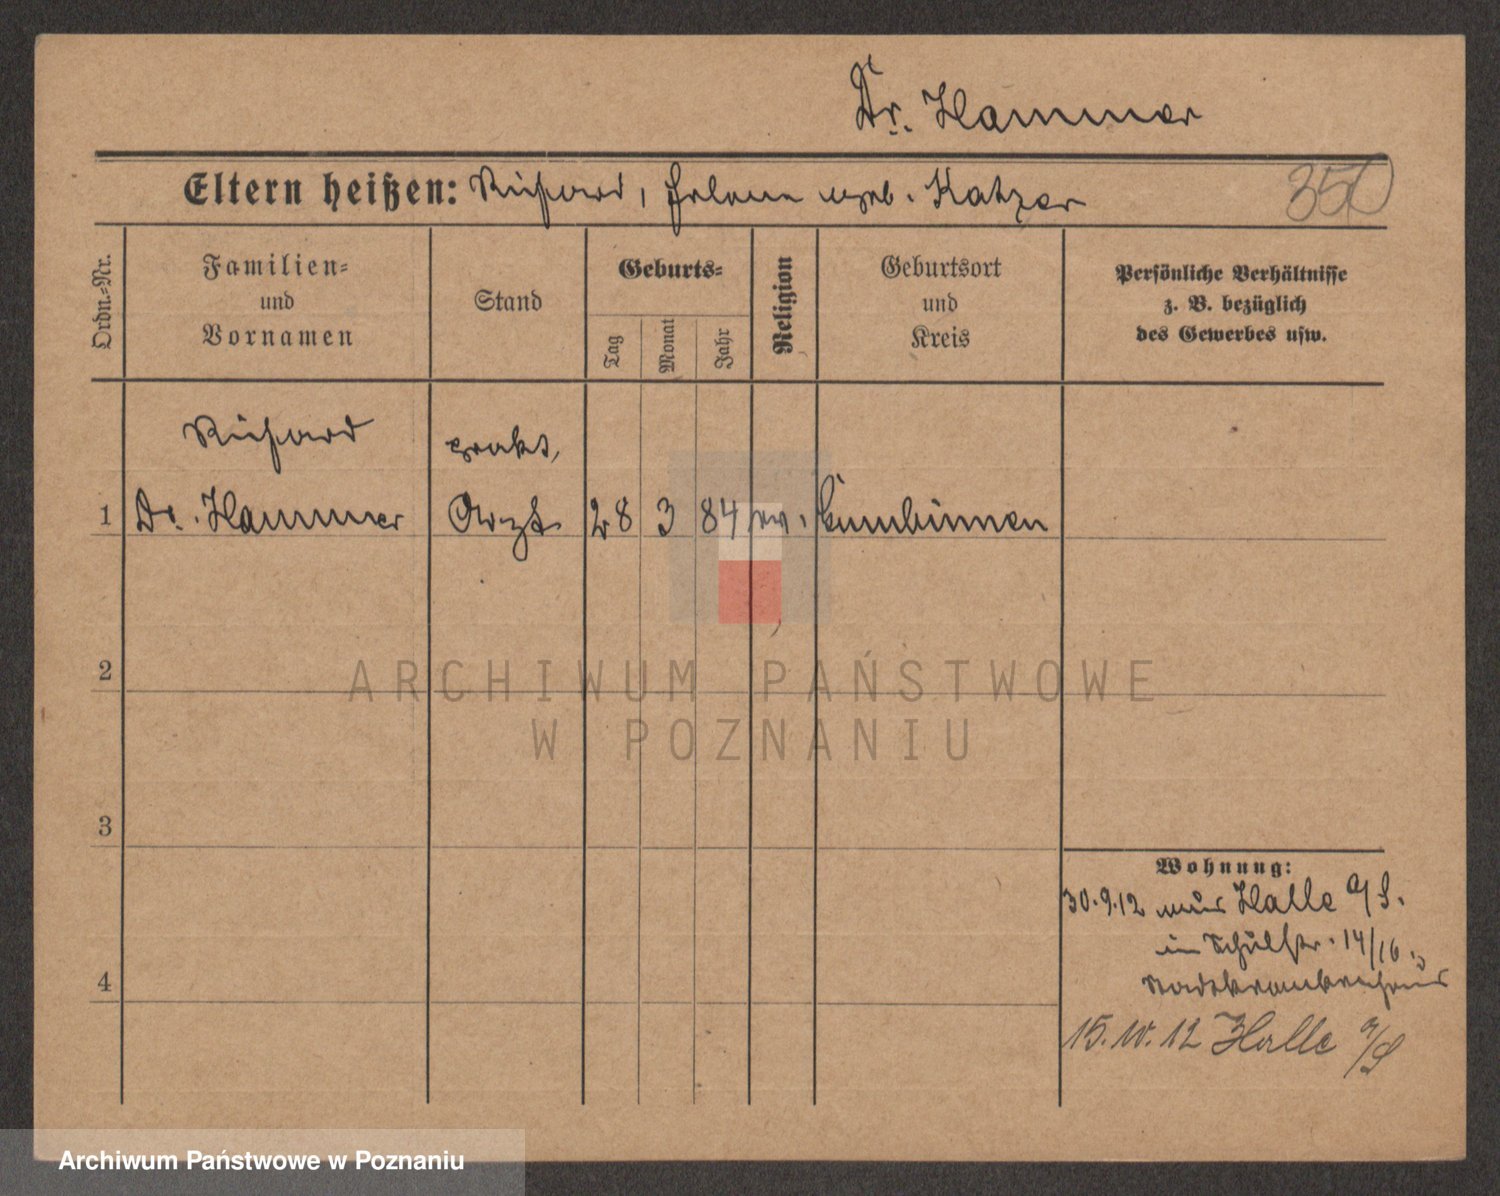 Dr. Hammer
Eltern heißen: Richard, Helene geb. Katzer
350
Ordn.=Nr.
Familien=
und
Vornamen
Stand
Geburts=
Tag
Monat
Jahr
Religion
Geburtsort
und
Kreis
Persönliche Verhältnisse
z. B. bezüglich
des Gewerbes usw.
Richard
prakt.
1 Dr. Hammer Arzt 28 3 84 Gumbinnen
2
ARCHIWUM PAŃSTWOWE
W POZNANIU
3
Wohnung:
30.9.12 Halle a/S.
in Schulstr. 14/16
Stadtkrankenhaus
15.10.12 Halle a/S
4
Archiwum Państwowe w Poznaniu